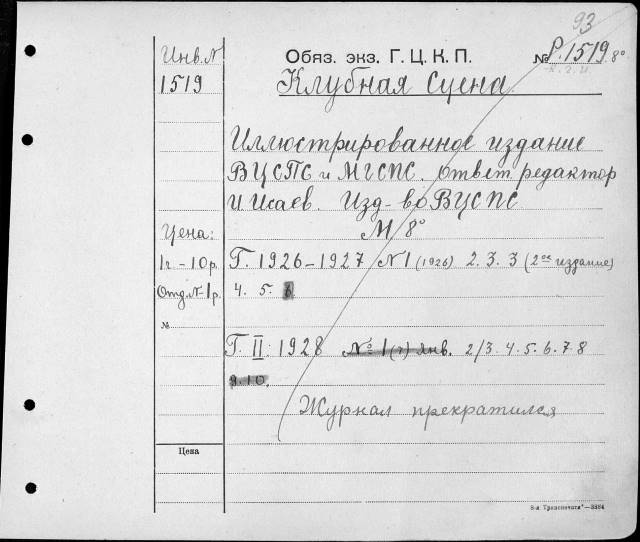 93
Инв. N
Обяз. экз. Г. Ц. К. П.
№ Р. 1519 8°
1519
Клубная сцена
Иллюстрированное издание
ВЦСПС и МГСПС. Ответ. редактор
И Исаев. Изд-во ВЦСПС
Цена:
М 8°
1г – 10р.
Г. 1926–1927 N1 (1926) 2. 3. 3 (2ое издание)
Отд. N – 1р.
4. 5. 6
№
Г. II: 1928 № 1(7) янв. 2/3. 4. 5. 6. 7. 8
9. 10.
Журнал прекратился
Цена
8-я „Транспечати“—3384